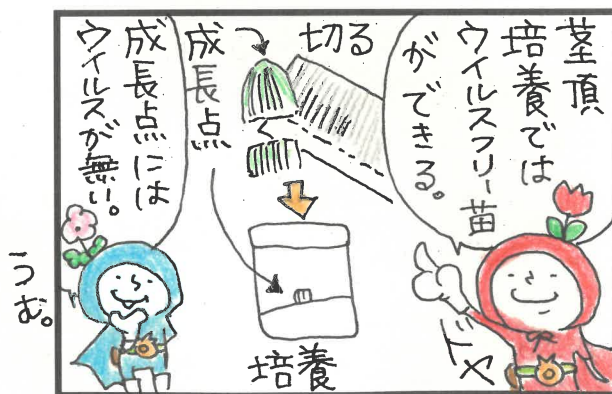 茎頂
培養では
ウイルスフリー苗
ができる。
ドヤ
切る
成長点
培養
成長点には
ウィルスが無い。
うむ。